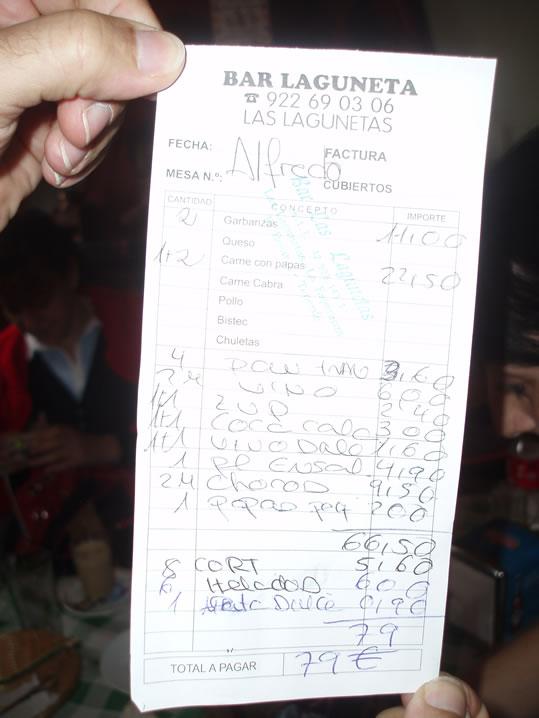 BAR LAGUNETA
☎ 922 69 03 06
LAS LAGUNETAS
FECHA: Alfredo FACTURA
MESA N.º: CUBIERTOS
CANTIDAD CONCEPTO IMPORTE
2 Garbanzas 11,00
Queso
1+2 Carne con papas 22,50
Carne Cabra
Pollo
Bistec
Chuletas
4 3,60
VINO 6,00
1+1 2 UP 2,40
1+1 COCA COLA 3,00
1+1 VINO 1,60
1 ENSAL 4,90
9,50
1 papas 2,00
66,50
8 CORT 5,60
6 Helados 6,00
1 Dulce 0,90
79
TOTAL A PAGAR 79 €